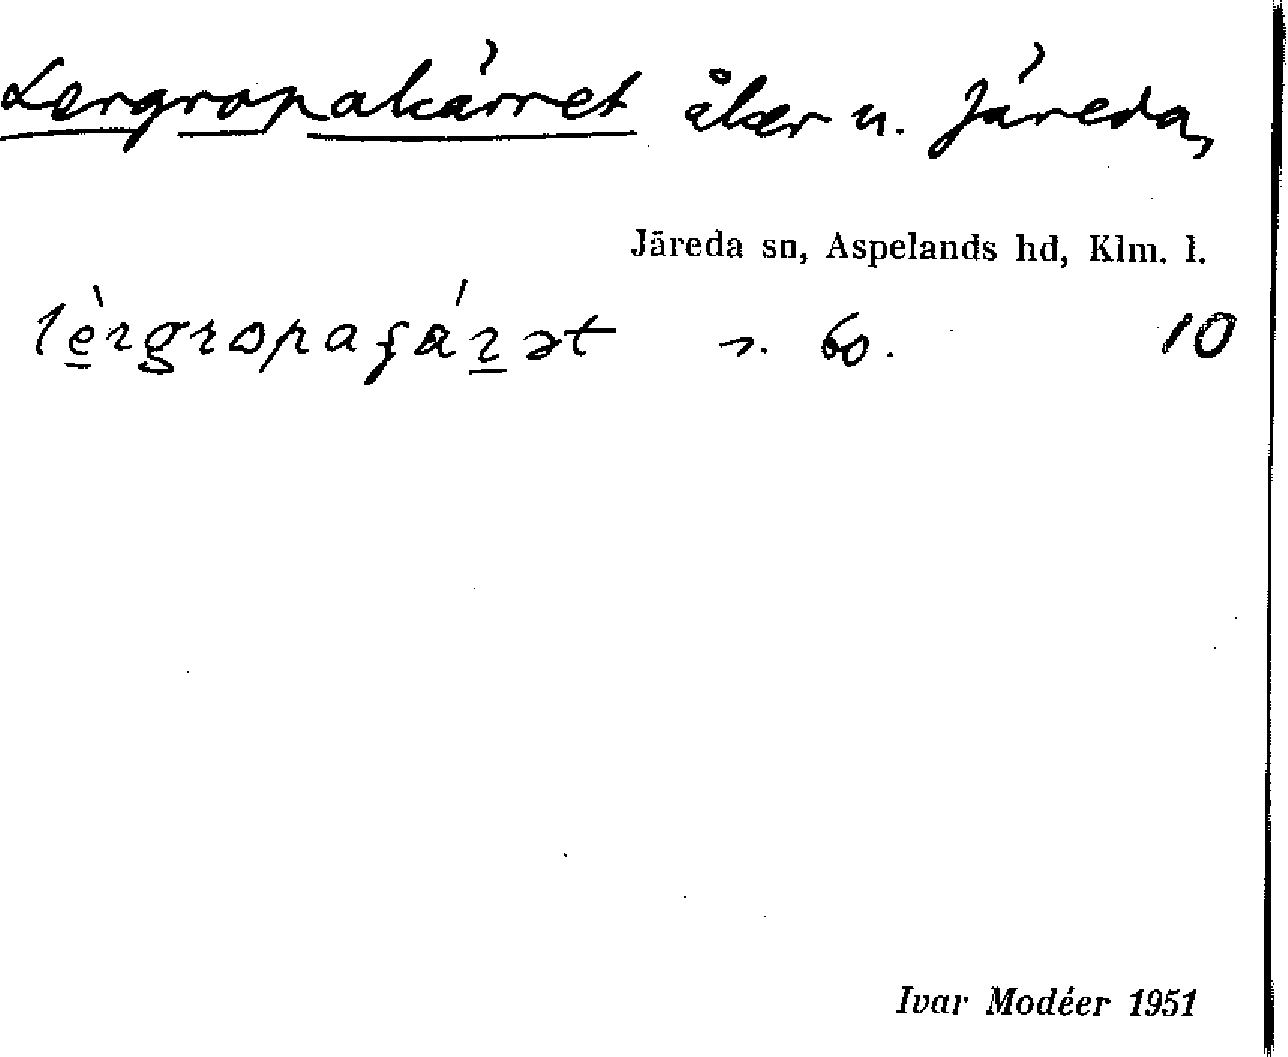 Lergropakärret åker u. Järeda,
Järeda sn, Aspelands hd, Klm. l.
10
Ivar Modéer 1951